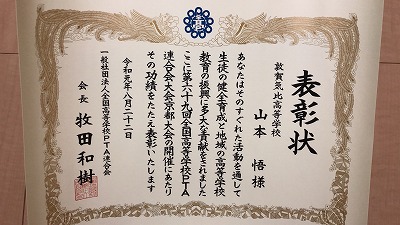 表彰状
敦賀気比高等学校
山本 悟 様
あなたはそのすぐれた活動を通して
生徒の健全育成と地域の高等学校
教育の振興に多大な貢献をされました
ここに第六十九回全国高等学校PTA
連合会大会京都大会の開催にあたり
その功績をたたえ表彰いたします
令和元年八月二十二日
一般社団法人全国高等学校PTA連合会
会長 牧田和樹